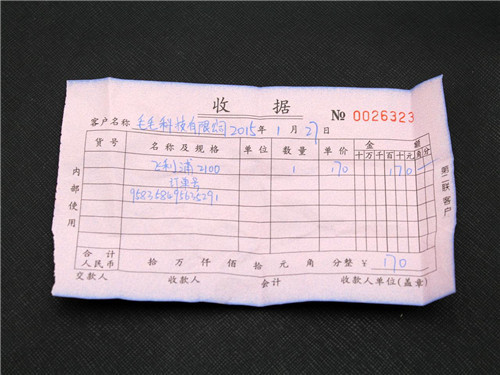 收 据
№ 0026323
客户名称 毛毛科技有限公司 2015年 1 月 27 日
货号 名称及规格 单位 数量 单价 金 额
十 万 千 百 十 元 角 分
飞利浦 2100 1 170 170
订单号
958358495635291
内部使用
第二联客户
合计人民币 拾 万 仟 佰 拾 元 角 分整 ¥ 170
交款人 收款人 会计 收款人单位(盖章)